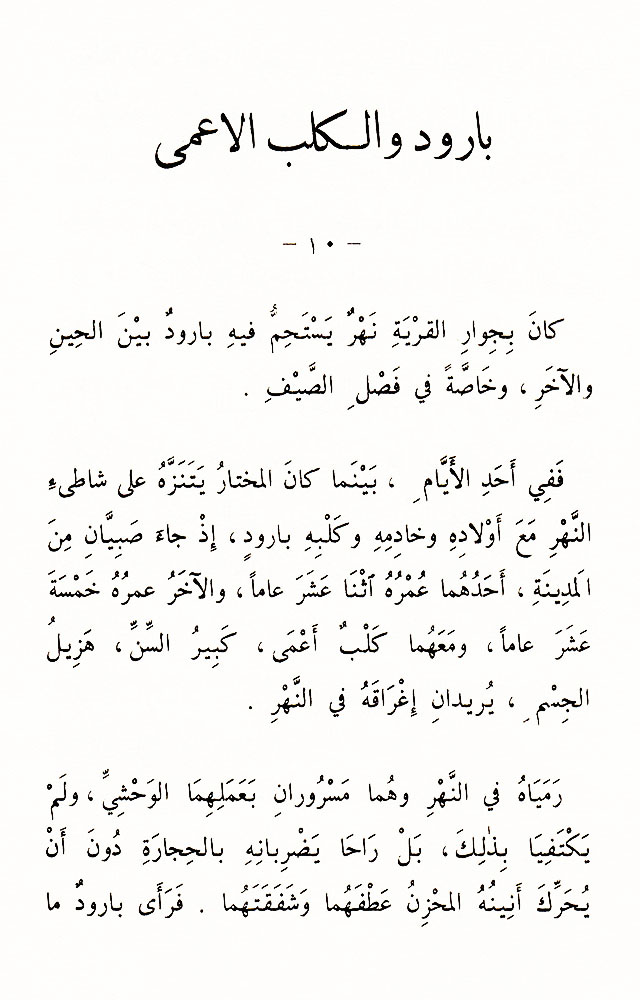 بارود والكلب الاعمى
– ١٠ –
كانَ بِجِوارِ القرْيَةِ نَهْرٌ يَسْتَحِمُّ فيهِ بارودٌ بيْنَ الحِينِ
والآخَرِ ، وخَاصَّةً في فَصْلِ الصَّيْفِ .
فَفِي أَحَدِ الأَيَّامِ ، بَيْنَما كانَ المختارُ يَتَنَزَّهُ على شاطىءِ
النَّهْرِ مَعَ أَوْلادِهِ وخادِمِهِ وكَلْبِهِ بارودٍ ، إِذْ جاءَ صَبِيَّانِ مِنَ
المَدِينَةِ ، أَحَدُهُما عُمْرُهُ ٱثْنَا عَشَرَ عاماً ، والآخَرُ عمرُهُ خَمْسَةَ
عَشَرَ عاماً ، ومَعَهُما كَلْبٌ أَعْمَى ، كَبِيرُ السِّنِّ ، هَزِيلُ
الجِسْمِ ، يُريدانِ إِغْرَاقَهُ في النَّهْرِ .
رَمَيَاهُ في النَّهْرِ وهُما مَسْرُورانِ بَعَمَلِهِمَا الوَحْشِيِّ ، ولَمْ
يَكْتَفِيَا بِذٰلِكَ ، بَلْ رَاحَا يَضْرِبانِهِ بالحِجارَةِ دُونَ أَنْ
يُحَرِّكَ أَنِينُهُ المحْزِنُ عَطْفَهُما وَشَفَقَتَهُما . فَرَأَى بارودٌ ما